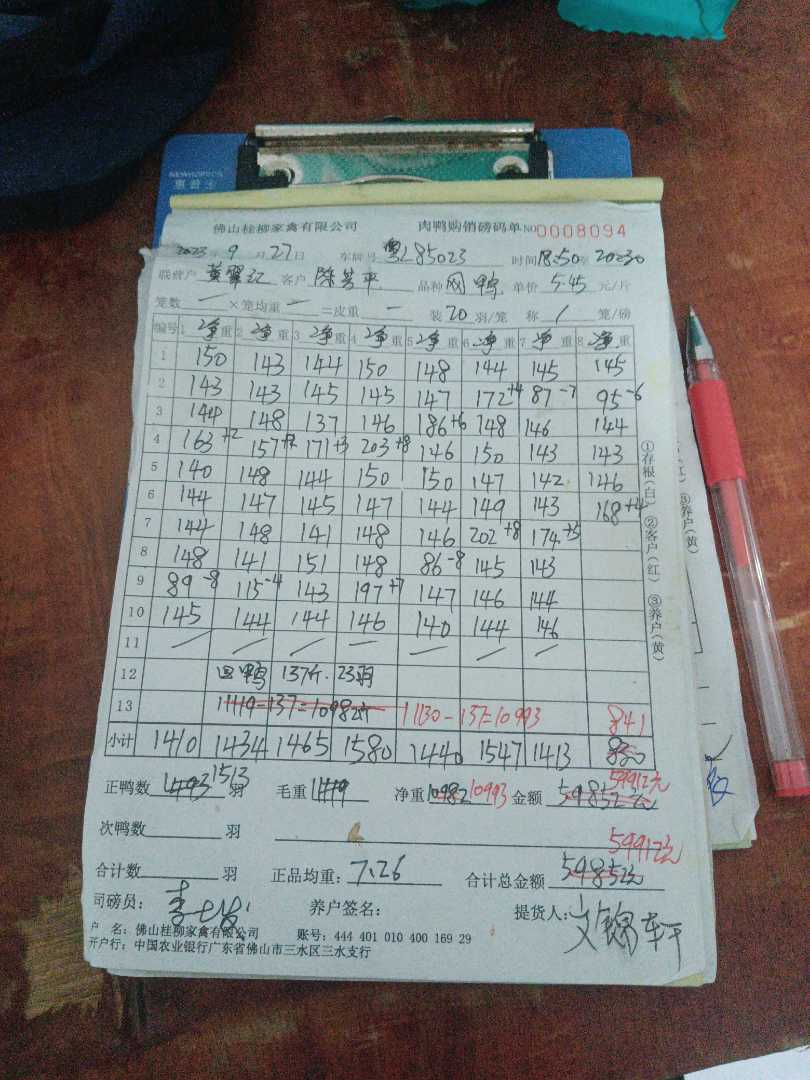 NEWHOPPCN
惠普生
佛山桂柳家禽有限公司 肉鸭购销磅码单 NO 0008094
2023年 9月 27日 车牌号 粤L85023 时间 18:50至 20:30
联营户 黄翠红 客户 陈芳平 品种 网鸭 单价 5.45 元/斤
笼数 — ×笼均重 — =皮重 — 装 20 羽/笼 称 1 笼/磅
编号 1 净重 2 净重 3 净重 4 净重 5 净重 6 净重 7 净重 8 净重
1 150 143 144 150 148 144 145 145
2 143 143 145 145 147 172+4 87-7 95-6
3 144 148 137 146 186+6 148 146 144
4 163+2 157+2 171+3 203+8 146 150 143 143
5 140 148 144 150 150 147 142 146
6 144 147 145 147 144 149 143 168+4
7 144 148 141 148 146 202+8 174+5
8 148 141 151 148 86-8 145 143
9 89-8 115-4 143 197+7 147 146 144
10 145 144 144 146 140 144 146
11 / / / — / / /
12 回鸭 137斤. 23羽
13 11119-137=10982斤 11130-137=10993 841
小计 1410 1434 1465 1580 1440 1547 1413 830
正鸭数 1493 1513 羽 毛重 11119 净重 10982 10993 金额 59852元 59912元
次鸭数 羽
59912元
合计数 羽 正品均重: 7.26 合计总金额 59852元
司磅员: 养户签名: 提货人:
户 名: 佛山桂柳家禽有限公司 账号: 444 401 010 400 169 29
开户行: 中国农业银行广东省佛山市三水区三水支行
①存根(白) ②客户(红) ③养户(黄)
③养户(黄)